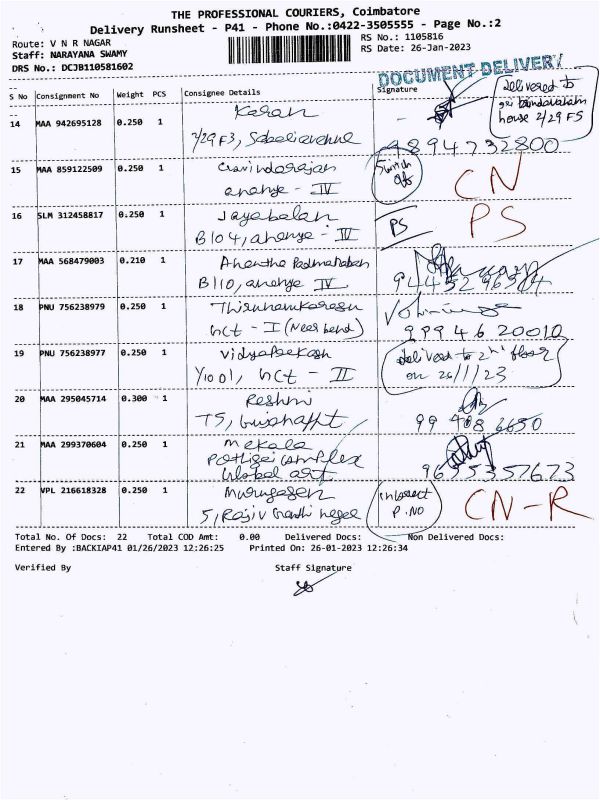 THE PROFESSIONAL COURIERS, Coimbatore
Delivery Runsheet - P41 - Phone No.:0422-3505555 - Page No.:2
Route: V N R NAGAR
Staff: NARAYANA SWAMY
DRS No.: DCJB110581602
RS No.: 1105816
RS Date: 26-Jan-2023
DOCUMENT DELIVERY
S No Consignment No Weight PCS Consignee Details Signature
14 MAA 942695128 0.250 1 Karan
7/29 F3,
Delivered to
house 2/29 F5
9894732800
15 MAA 859122509 0.250 1 Aravindarajan
ananya - IV
Switch
off
CN
16 SLM 312458817 0.250 1 Jayabalan
B104, ananya - IV
PS PS
17 MAA 568479003 0.210 1 Anantha Padmanaban
B110, ananya IV
18 PNU 756238979 0.250 1
hct - I (Near bend)
99946 20010
19 PNU 756238977 0.250 1 Vidya Prakash
Y1001, hct - II
delivered to 2nd floor
on 26/1/23
20 MAA 295045714 0.300 1 Reshmi
T5,
99 408 6650
21 MAA 299370604 0.250 1 Mekala
Pothigai complex
Global art
9655357673
22 VPL 216618328 0.250 1 Murugasen
5, Rajiv Gandhi nagar
Incorrect
P.NO
CN-R
Total No. Of Docs: 22 Total COD Amt: 0.00 Delivered Docs: Non Delivered Docs:
Entered By :BACKIAP41 01/26/2023 12:26:25 Printed On: 26-01-2023 12:26:34
Verified By Staff Signature